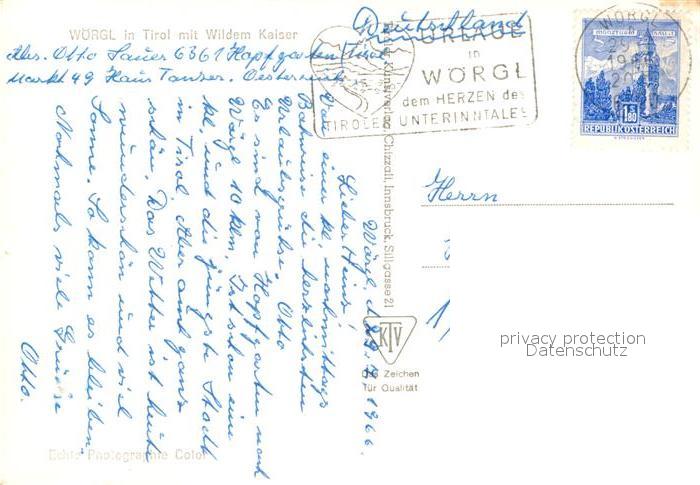 WÖRGL in Tirol mit Wildem Kaiser
Abs. Otto Sauer 6361 Hopfgarten/Tirol
Markt 49 Haus Tanzer. Oesterreich
Deutschland
URLAUB
in
WÖRGL
dem HERZEN des
TIROLER UNTERINNTALES
WÖRGL
MÜNZTURM HALL i. T.
1.80
REPUBLIK ÖSTERREICH
Wörgl d. 29.7.1966.
Lieber Heinz!
Von einer kl. nachmittags
Bahnreise die herzlichsten
Urlaubsgrüße. Otto
Es sind von Hopfgarten nach
Wörgl 10 klm. Ist schon eine
kl. und die jüngste Stadt
in Tirol. Aber auch ganz
schön. Das Wetter ist heute
wunderschön und viel
Sonne. So kann es bleiben.
Nochmals viele Grüsse
Otto.
Kunstverlag Chizzali, Innsbruck, Sillgasse 21
KTV
Das Zeichen
für Qualität
Herrn
privacy protection
Datenschutz
Echte Photographie Color